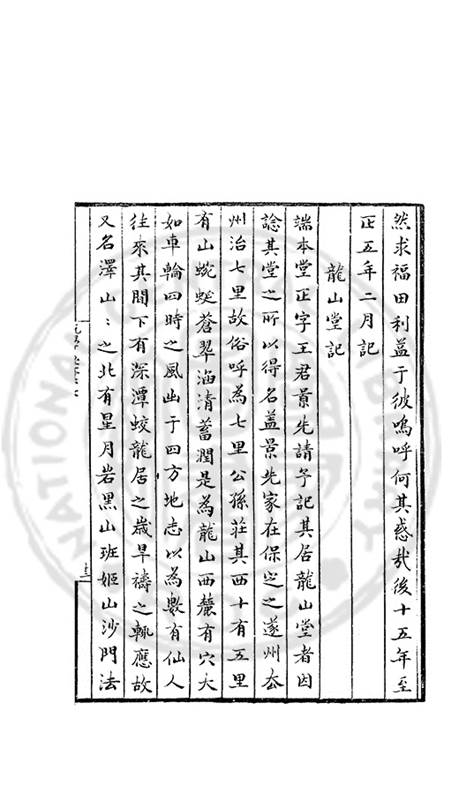 然求福田利益于彼嗚呼何其惑哉後十五年至
正五年二月記
龍山堂記
端本堂正字王君景先請予記其居龍山堂者因
諗其堂之所以得名盖景先家在保定之遂州去
州治七里故俗呼為七里公孫莊其西十有五里
有山蜿蜒蒼翠涵清蓄潤是為龍山西麓有穴大
如車輪四時之風出于四方地志以為數有仙人
往來其間下有深潭蛟龍居之歳旱禱之輒應故
又名澤山〻之北有星月岩黑山班姬山沙門法